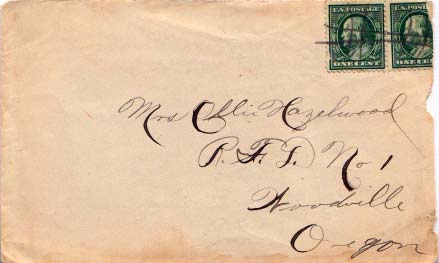 U.S. POSTAGE U.S. POSTAGE
ONE CENT ONE CENT
Mrs Ollie Hazelwood
R.F.D. No 1
Woodville
Oregon